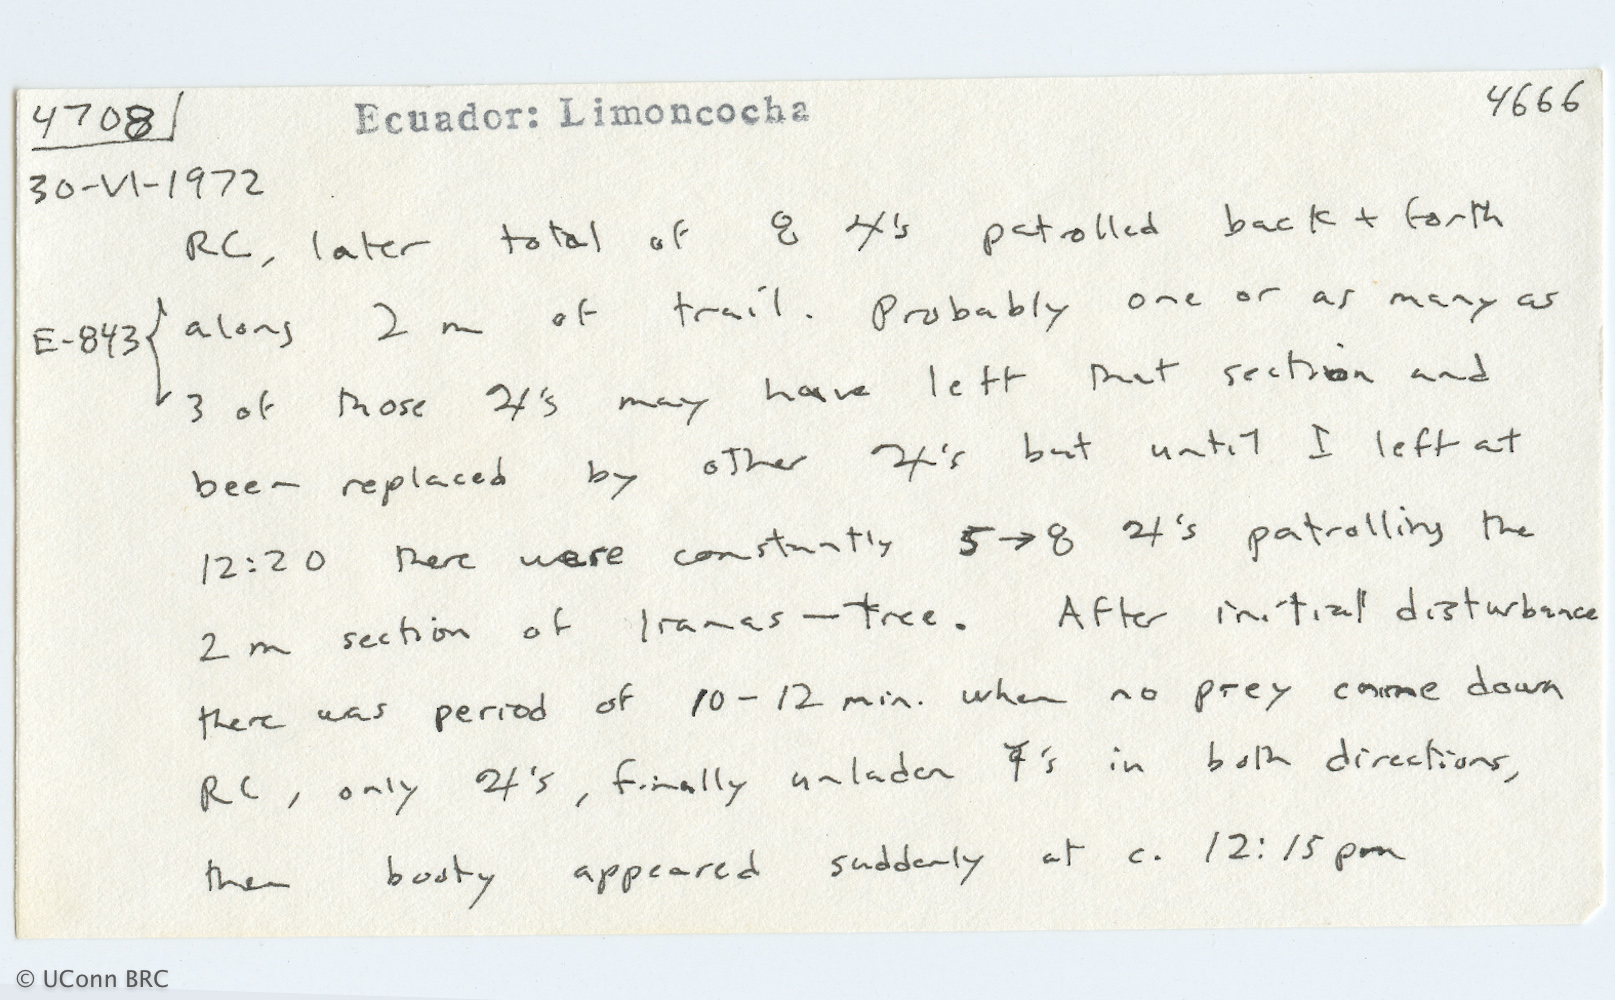 4708 Ecuador: Limoncocha 4666
30-VI-1972
RC, later total of 8 ♃'s patrolled back + forth
E-843 { along 2 m of trail. Probably one or as many as
3 of those ♃'s may have left that section and
been replaced by other ♃'s but until I left at
12:20 there were constantly 5→8 ♃'s patrolling the
2 m section of lianas — tree. After initial disturbance
there was period of 10-12 min. when no prey came down
RC, only ♃'s, finally unladen 's in both directions,
then booty appeared suddenly at c. 12:15 pm
© UConn BRC